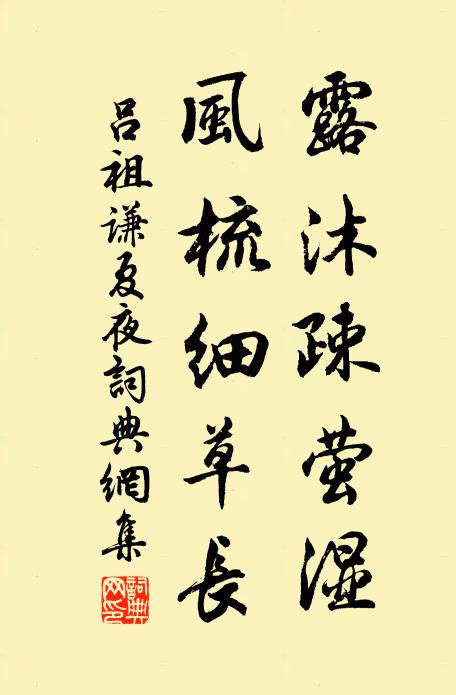 露沐疎萤湿
風梳细草長
吕祖謙夏夜詞典網集
詞典網印